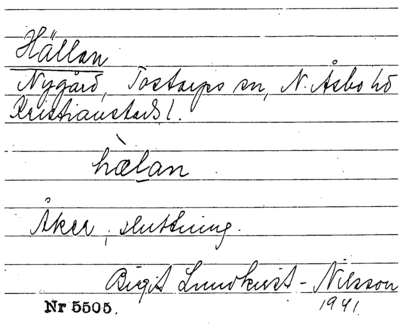 Hällan
Nygård, Tostarps sn, N. Åsbo hd
Kristianstads l.
hælan
Åker, sluttning.
Birgit Lundkvist - Nilsson
1941.
Nr 5505.